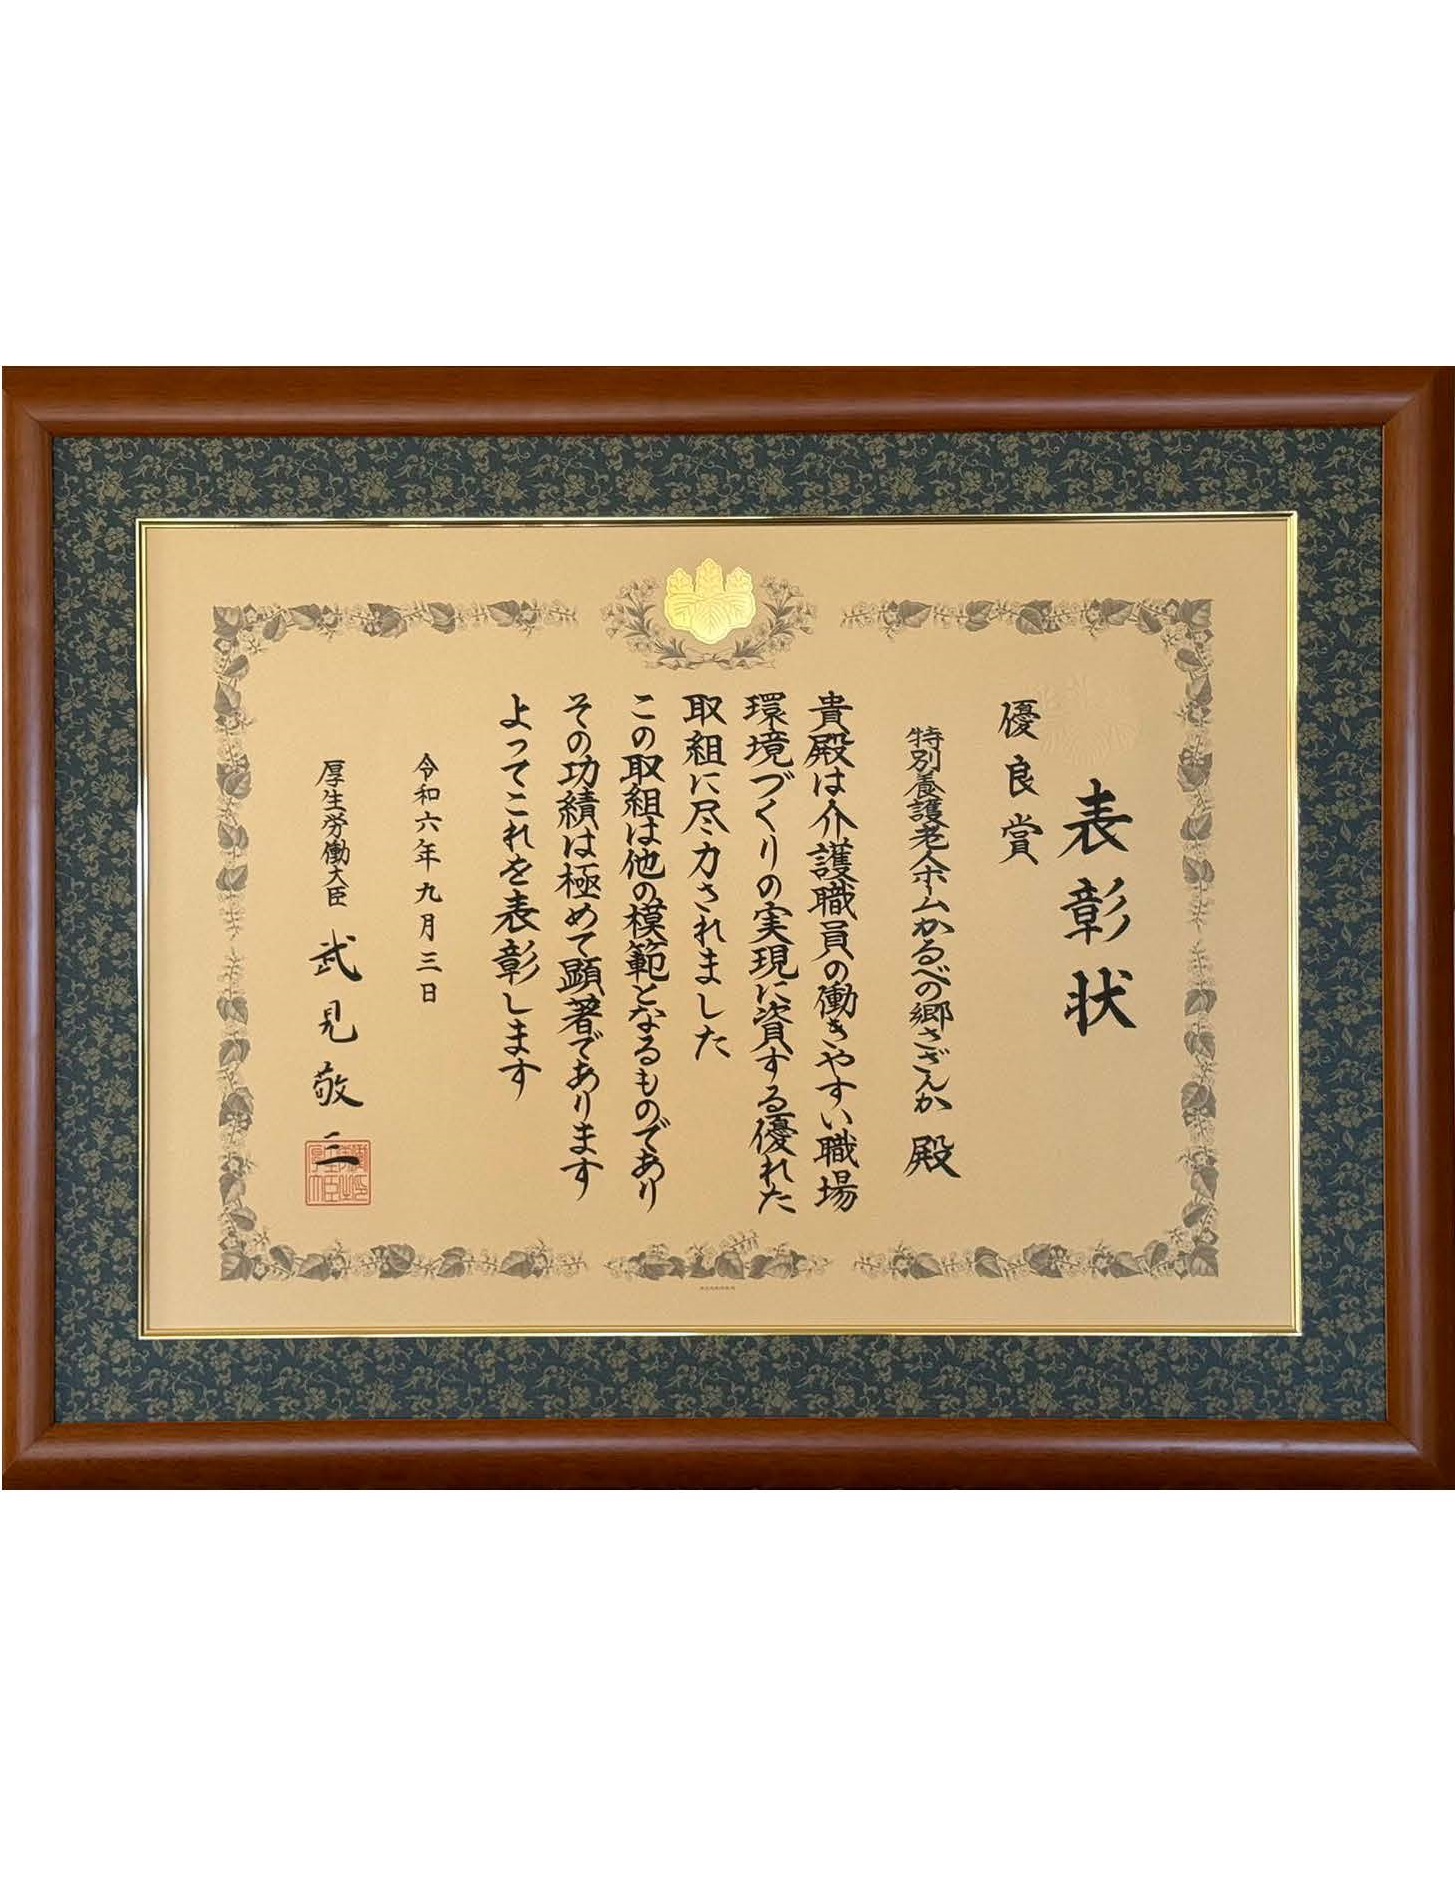 表彰状
優良賞
特別養護老人ホームかるべの郷さざんか 殿
貴殿は介護職員の働きやすい職場
環境づくりの実現に資する優れた
取組に尽力されました
この取組は他の模範となるものであり
その功績は極めて顕著であります
よってこれを表彰します
令和六年九月三日
厚生労働大臣 武見敬三